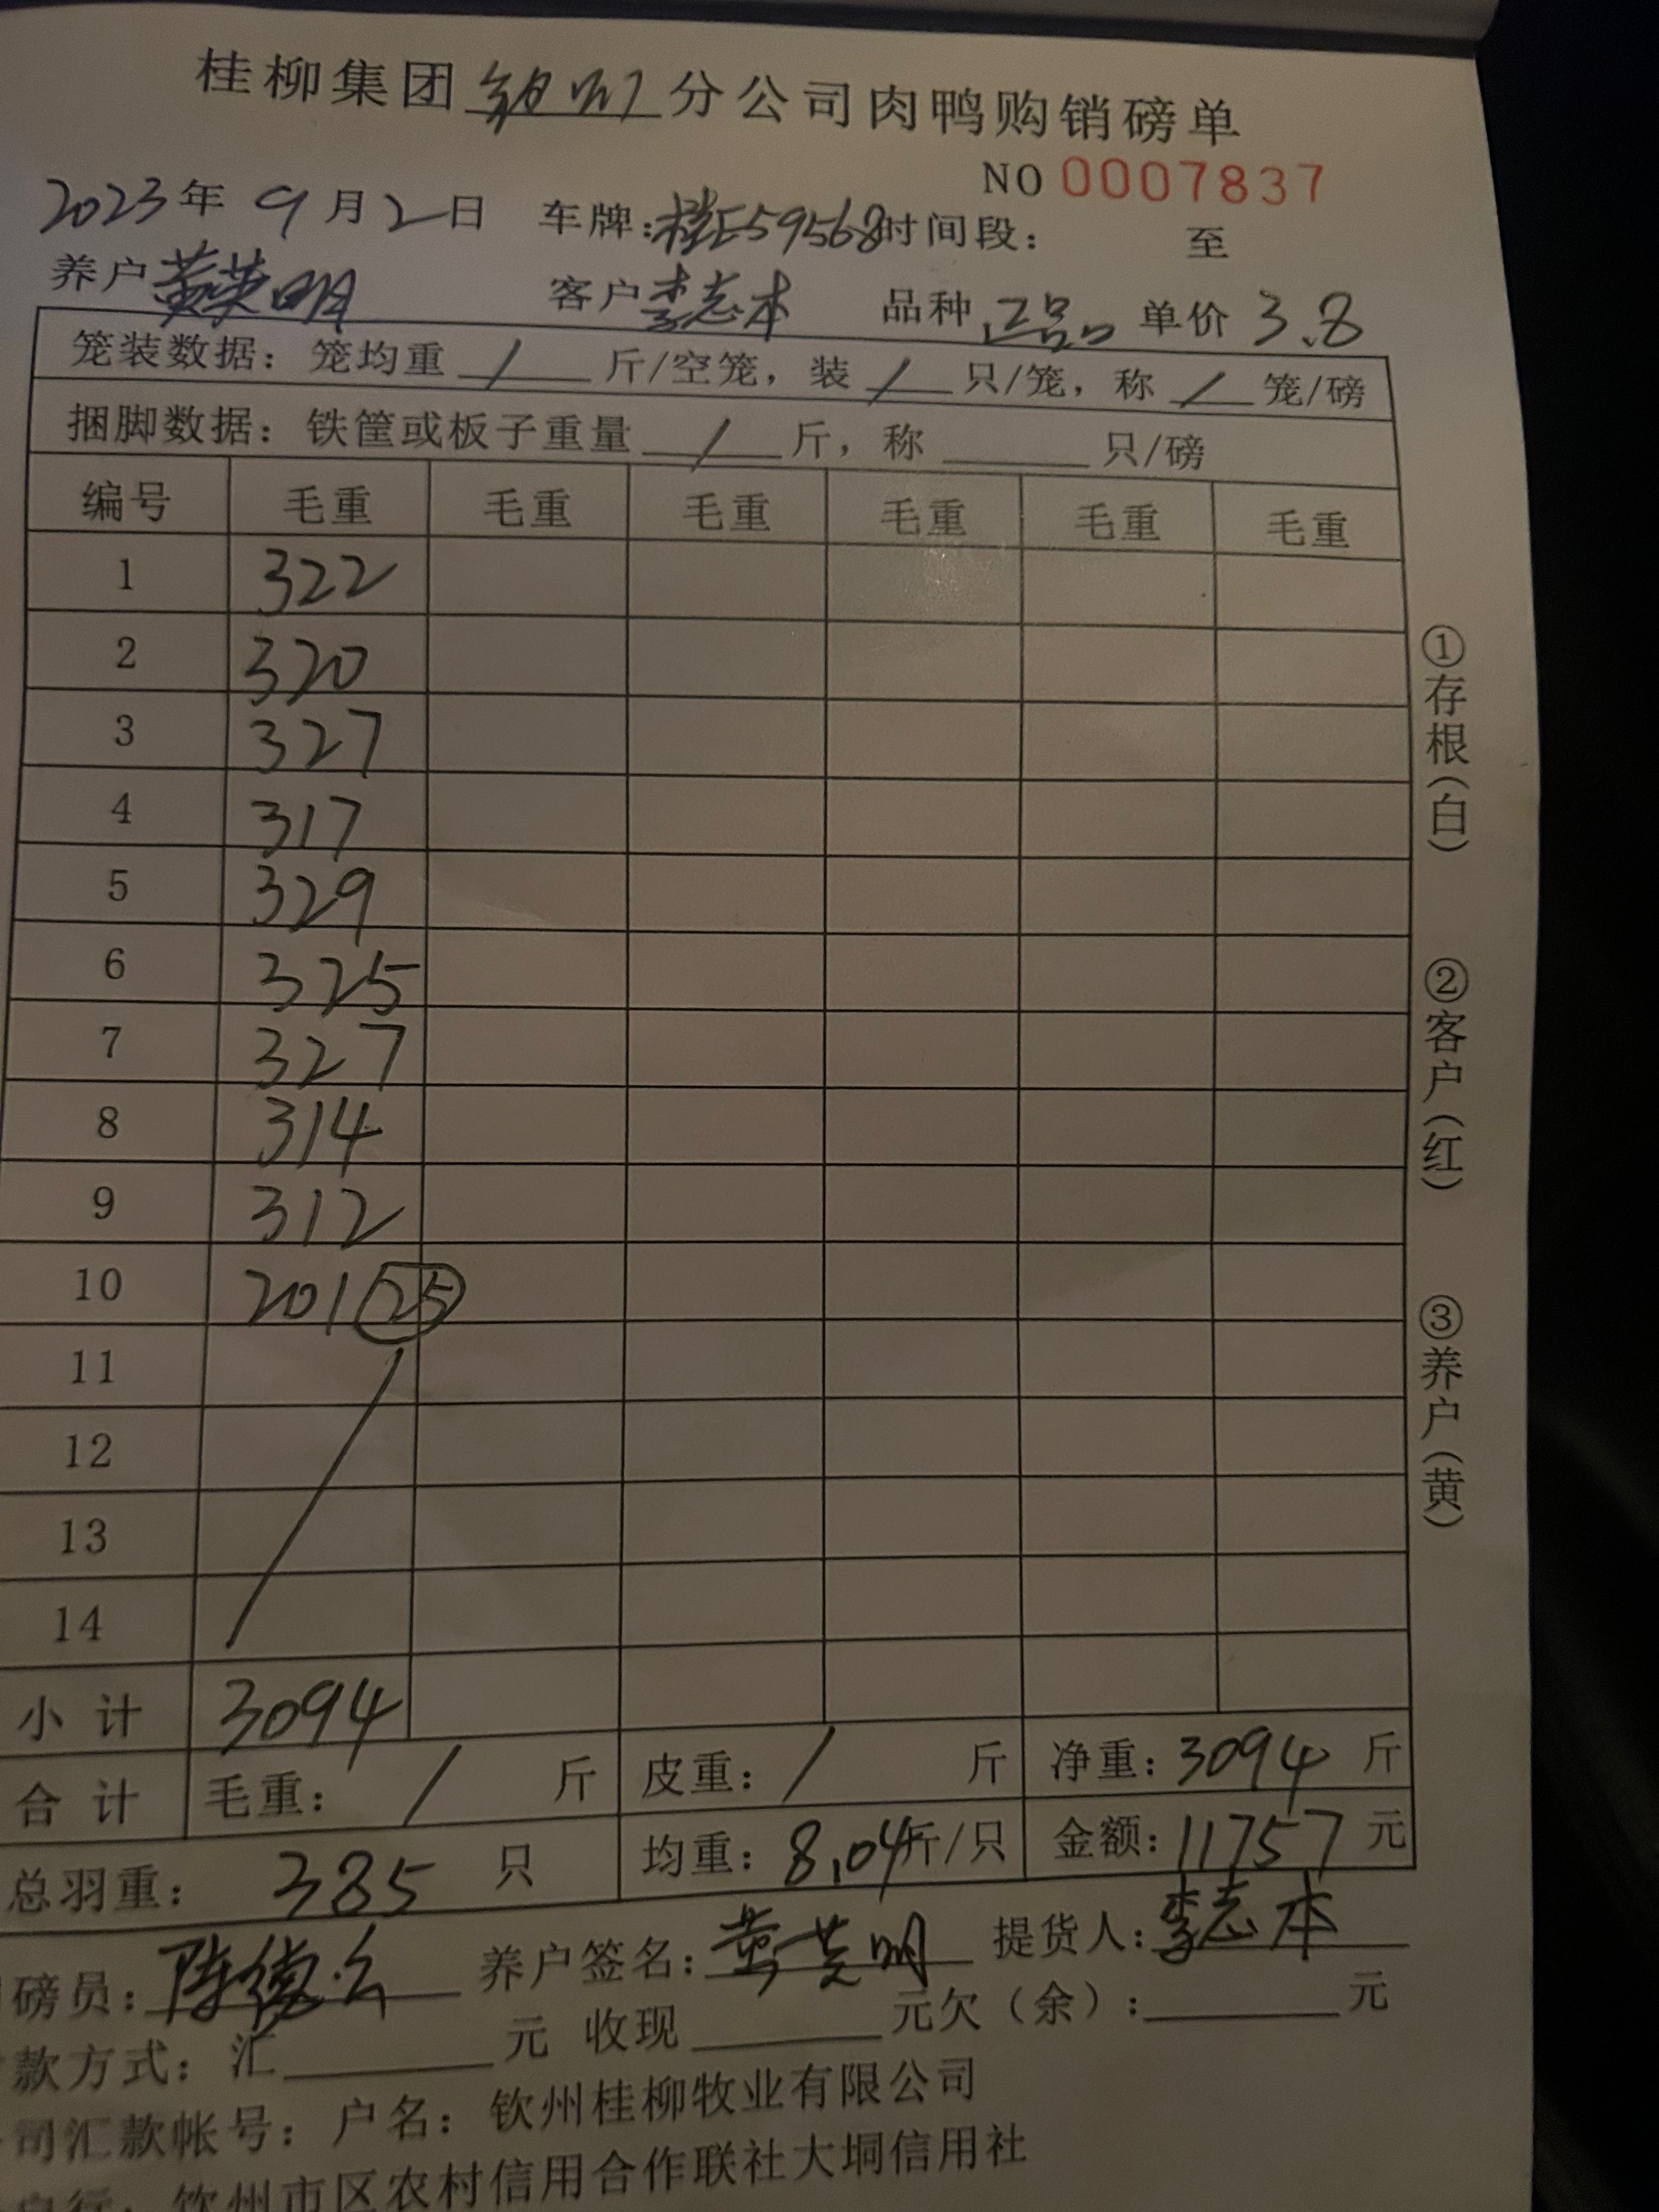 桂柳集团 钦州 分公司肉鸭购销磅单
NO 0007837
2023年 9月2日 车牌:桂E59568 时间段: 至
养户 黄英明 客户 李志本 品种 正品 单价 3.8
笼装数据: 笼均重 / 斤/空笼, 装 / 只/笼, 称 / 笼/磅
捆脚数据: 铁筐或板子重量 / 斤, 称 只/磅
编号 毛重 毛重 毛重 毛重 毛重 毛重
1 322
2 320
3 327
4 317
5 329
6 325
7 327
8 314
9 312
10 201 25
11
12
13
14
小计 3094
合计 毛重: / 斤 皮重: / 斤 净重: 3094 斤
总羽重: 385 只 均重: 8.04斤/只 金额: 11757 元
磅员: 陈德 养户签名: 黄英明 提货人: 李志本
款方式: 汇 元 收现 元欠(余): 元
司汇款帐号: 户名: 钦州桂柳牧业有限公司
钦州市区农村信用合作联社大垌信用社
①存根(白)
②客户(红)
③养户(黄)